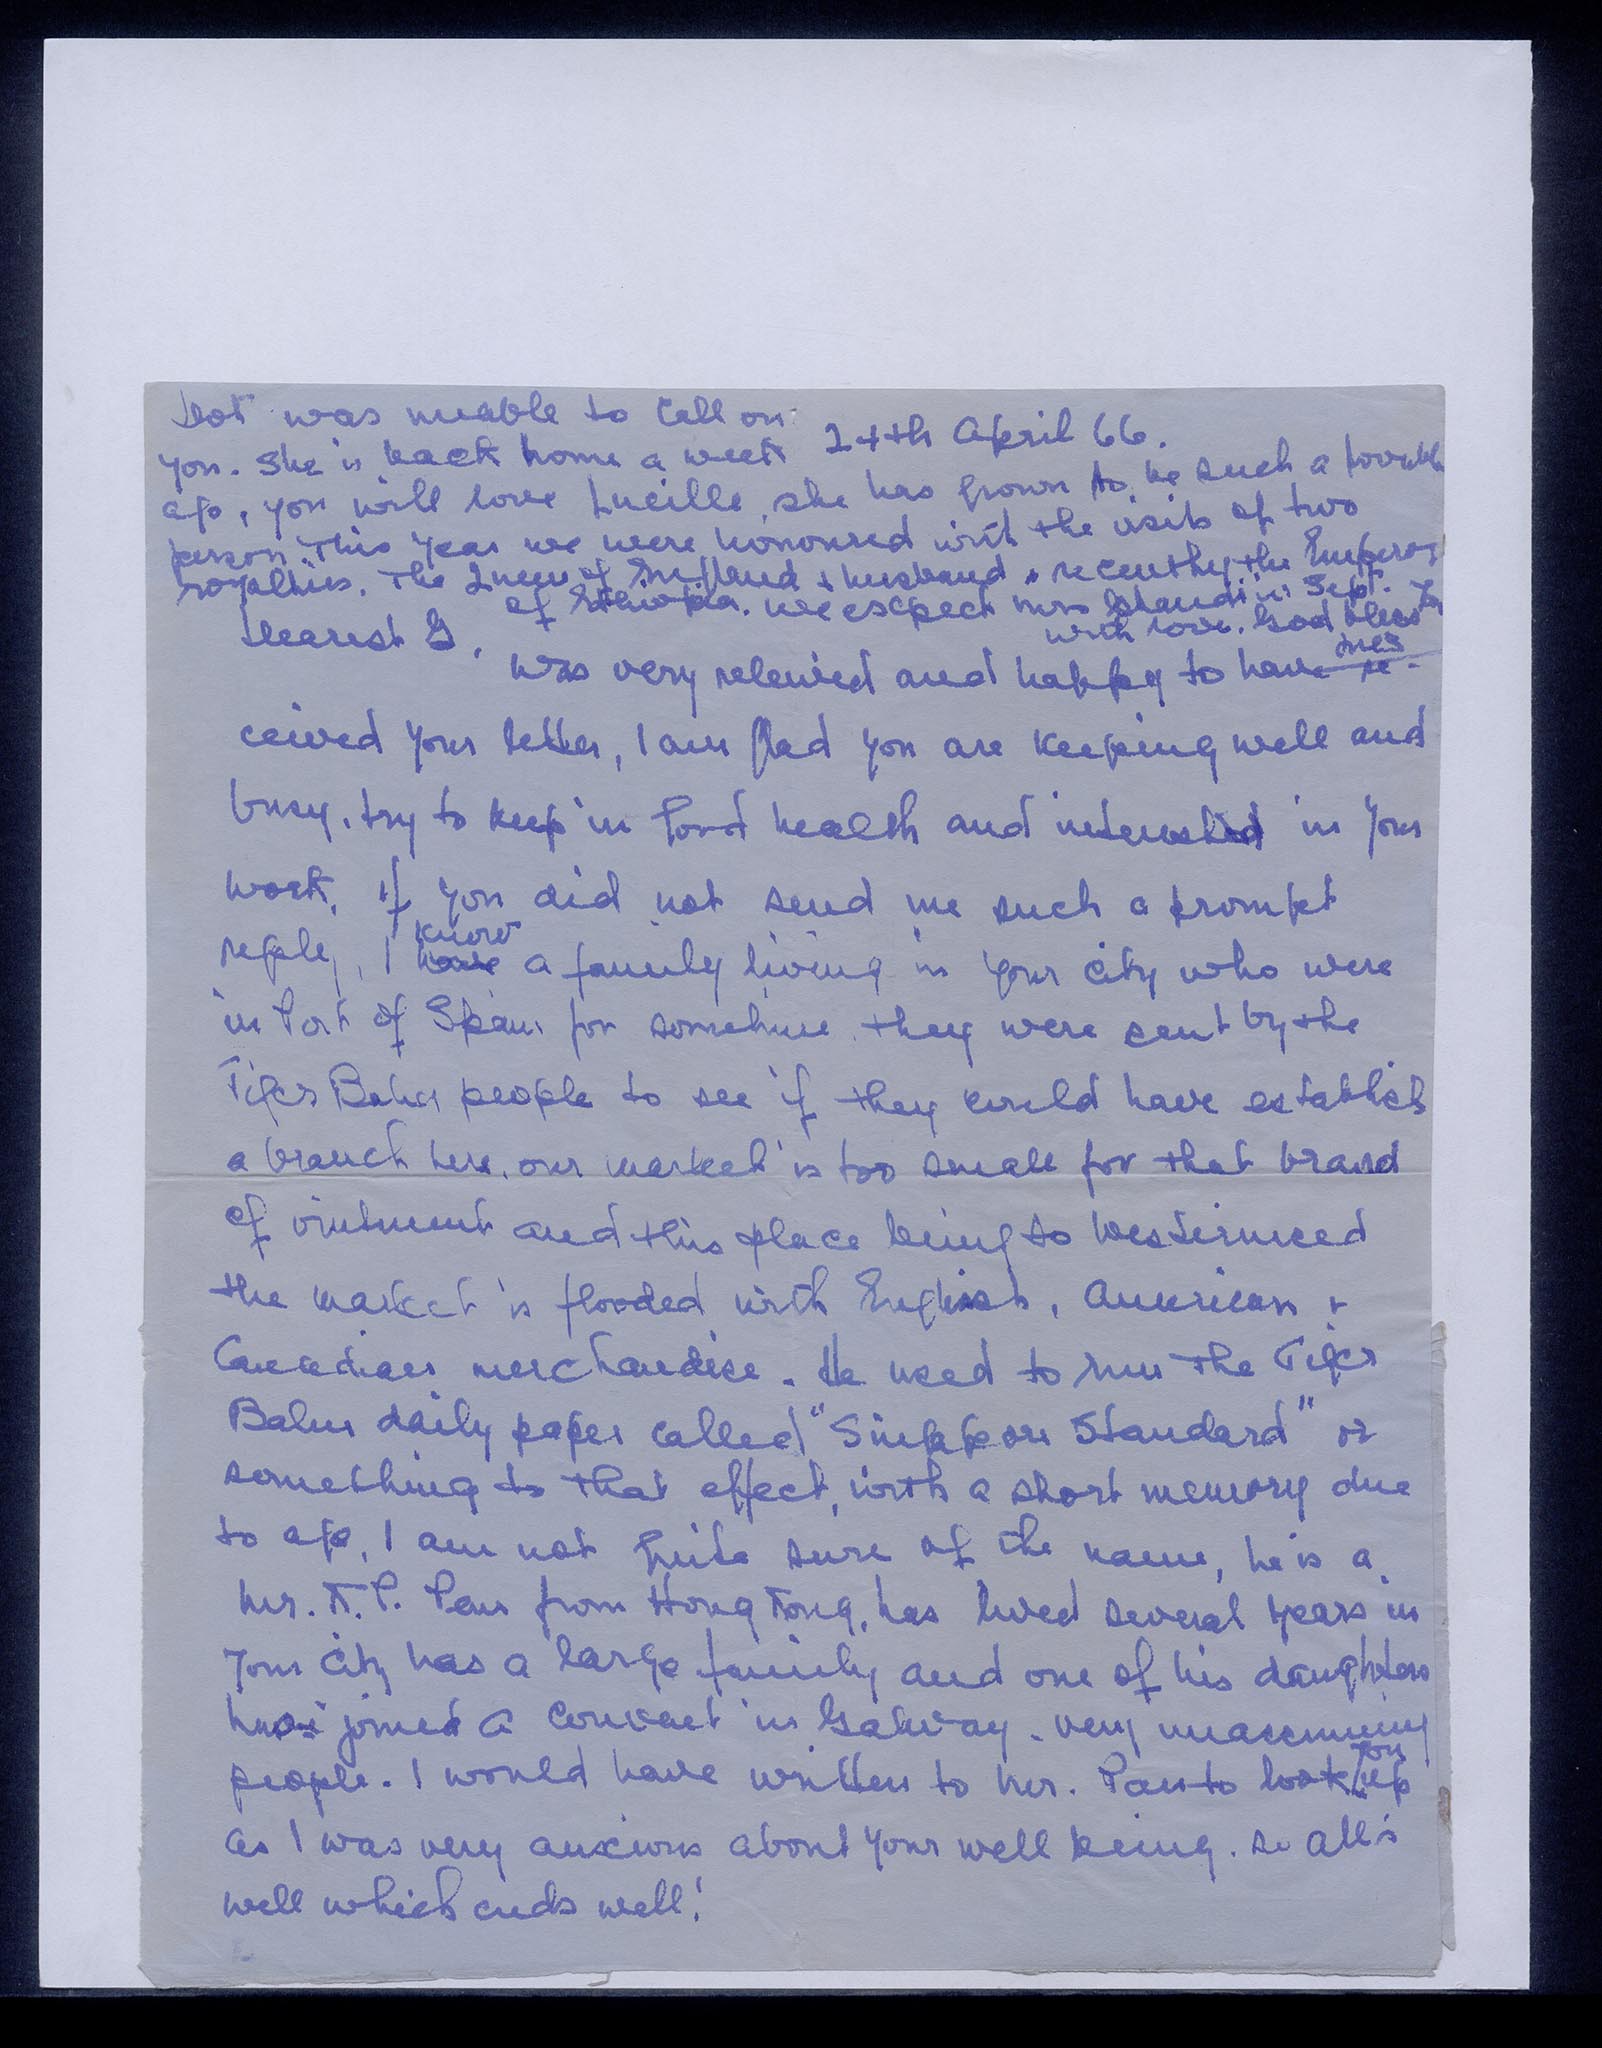 Dot was unable to call on
24th April 66.
you. She is back home a week
ago, you will love Lucille, she has grown to be such a lovable
person. This year we were honoured with the visits of two
royalties. The Queen of England & husband & recently the Emperor
of Ethiopia. we expect mrs Ghandi in Sept.
with love. God bless you
Dearest G,
was very relieved and happy to have re-
ceived your letter, I am glad you are keeping well and
busy. try to keep in good health and interested in your
work. if you did not send me such a prompt
reply, I know a family living in your city who were
in Port of Spain for sometime. they were sent by the
Tiger Balm people to see if they could have establish
a branch here. our market is too small for that brand
of ointment and this place being to westernized
the market is flooded with English, American &
Canadian merchandise. He used to run the Tiger
Balm daily paper called "Singapore Standard" or
something to that effect, with a short memory due
to age, I am not quite sure of the name, he is a
Mr. K. P. Pan from Hong Kong, has lived several years in
your city has a large family and one of his daughters
has joined a convent in Galway. very unassuming
people. I would have written to Mr. Pan to look you up
as I was very anxious about your well being. so all's
well which ends well!